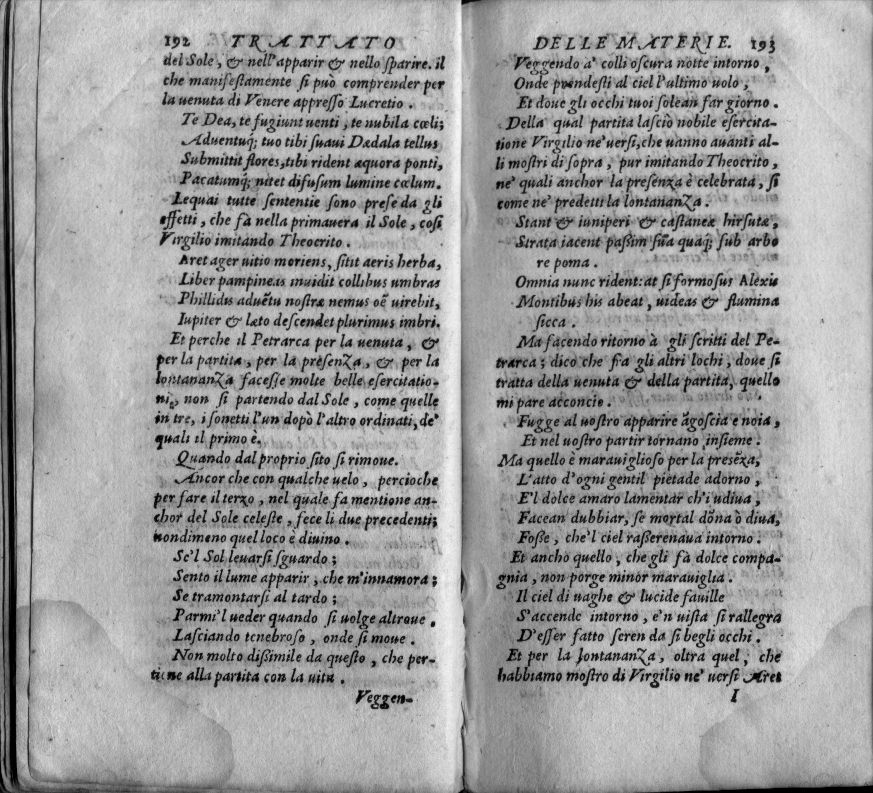 192 TRATTATO
del Sole, & nell'apparir & nello ſparire. il
che manifeſtamente ſi può comprender per
la uenuta di Venere appreſſo Lucretio.
Te Dea, te fugiunt uenti, te nubila cœli;
Aduentuq́; tuo tibi ſuaui Dædala tellus
Submittit flores, tibi rident æquora ponti,
Pacatumq́; nitet difuſum lumine cœlum.
Lequai tutte ſententie ſono preſe da gli
effetti, che fà nella primauera il Sole, coſi
Virgilio imitando Theocrito.
Aret ager uitio moriens, ſitit aeris herba,
Liber pampineas inuidit collibus umbras
Phillidis aduētu noſtræ nemus oē uirebit,
Iupiter & læto deſcendet plurimus imbri.
Et perche il Petrarca per la uenuta, &
per la partita, per la preſenza, & per la
lontananza faceſſe molte belle eſercitatio-
ni, non ſi partendo dal Sole, come quelle
in tre, i ſonetti l'un dopò l'altro ordinati, de'
quali il primo è.
Quando dal proprio ſito ſi rimoue.
Ancor che con qualche uelo, percioche
per fare il terzo, nel quale fa mentione an-
chor del Sole celeſte, fece li due precedenti;
nondimeno quel loco è diuino.
Se'l Sol leuarſi ſguardo;
Sento il lume apparir, che m'innamora;
Se tramontarſi al tardo;
Parmi'l ueder quando ſi uolge altroue.
Laſciando tenebroſo, onde ſi moue.
Non molto diſſimile da queſto, che per-
tiene alla partita con la uita.
Veggen-
DELLE MATERIE. 193
Veggendo a' colli oſcura notte intorno,
Onde prendeſti al ciel l'ultimo uolo,
Et doue gli occhi tuoi ſolean far giorno.
Della qual partita laſciò nobile eſercita-
tione Virgilio ne' uerſi, che uanno auanti al-
li moſtri di ſopra, pur imitando Theocrito,
ne' quali anchor la preſenza è celebrata, ſi
come ne' predetti la lontananza.
Stant & iuniperi & caſtaneæ hirſutæ,
Strata iacent paſſim ſua quaq́; ſub arbo
re poma.
Omnia nunc rident: at ſi formoſus Alexis
Montibus his abeat, uideas & flumina
ſicca.
Ma facendo ritorno à gli ſcritti del Pe-
trarca; dico che fra gli altri lochi, doue ſi
tratta della uenuta & della partita, quello
mi pare acconcio.
Fugge al uoſtro apparire āgoſcia e noia,
Et nel uoſtro partir tornano inſieme.
Ma quello è marauiglioſo per la preſēza,
L'atto d'ogni gentil pietade adorno,
E'l dolce amaro lamentar ch'i udiua,
Facean dubbiar, ſe mortal dōna ò diua,
Foſſe, che'l ciel raſſerenaua intorno.
Et ancho quello, che gli fà dolce compa-
gnia, non porge minor marauiglia.
Il ciel di uaghe & lucide fauille
S'accende intorno, e'n uiſta ſi rallegra
D'eſſer fatto ſeren da ſi begli occhi.
Et per la lontananza, oltra quel, che
habbiamo moſtro di Virgilio ne' uerſi Aret
I